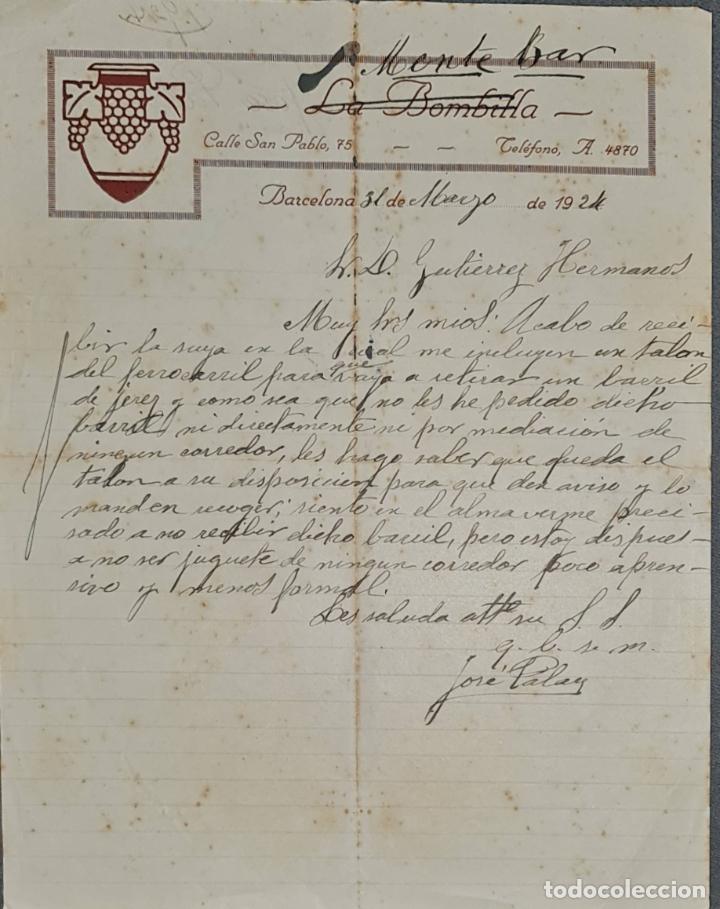 Monte Bar
— La Bombilla —
Calle San Pablo, 75 — — Teléfono, A. 4870
Barcelona 31 de Marzo de 1924
Sr. D. Gutierrez Hermanos
Muy Srs mios: Acabo de reci-
bir la suya en la cual me incluyen un talon
del ferrocarril para que vaya a retirar un barril
de jerez y como sea que no les he pedido dicho
barril, ni directamente ni por mediación de
ningun corredor, les hago saber que queda el
talon a su disposicion para que den aviso y lo
manden recoger; siento en el alma verme preci-
sado a no recibir dicho baril, pero estoy dispues-
a no ser juguete de ningun corredor poco apren-
sivo y menos formal.
Les saluda atte su S. S.
q. b. s. m.
José Palau
todocoleccion.net